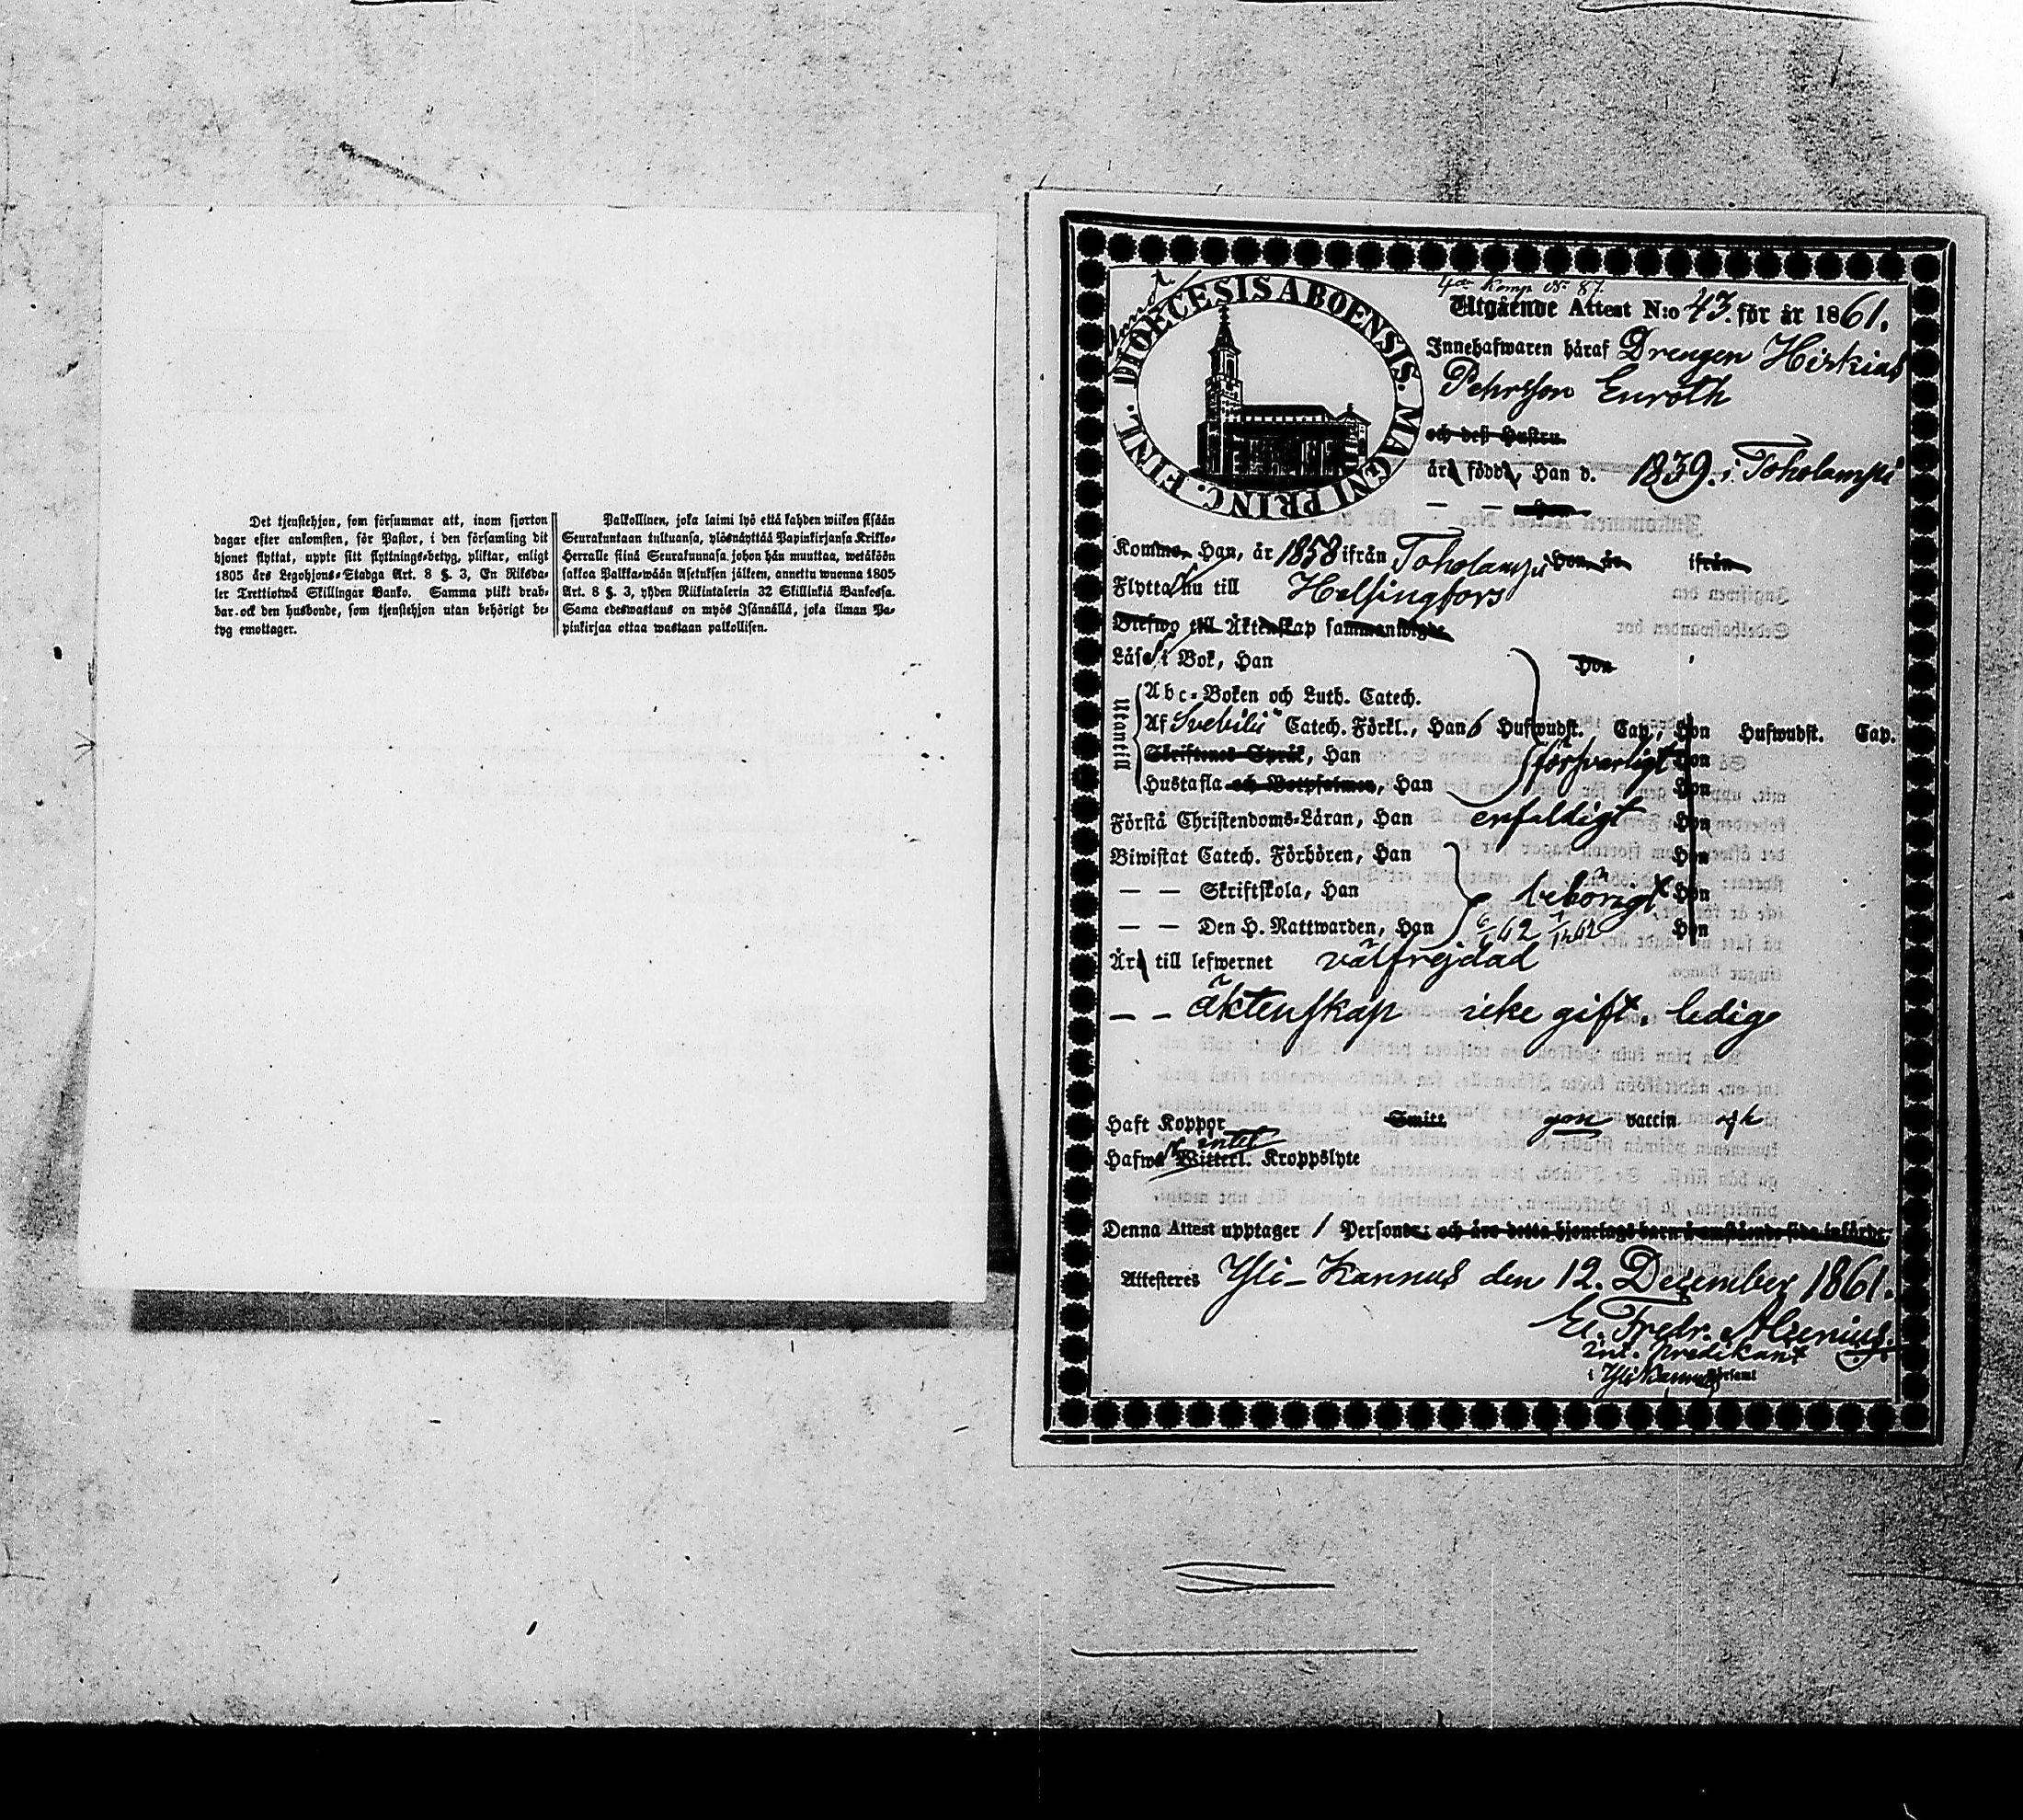 Det tjenstehjon, som försummar att, inom fjorton
dagar efter ankomsten, för Pastor, i den församling dit
hjonet flyttat, uppte sitt flyttnings-betyg, pliktar, enligt
1805 års Legohjons-Stadga Art. 8 §. 3, En Riksda-
ler Trettiotwå Skillingar Banko. Samma plikt drab-
bar ock den husbonde, som tjenstehjon utan behörigt be-
tyg emottager.
Palkollinen, joka laimi lyö että kahden wiikon sisään
Seurakuntaan tultuansa, ylösnäyttää Papinkirjansa Kirkko-
Herralle siinä Seurakunnasa johon hän muuttaa, wetäköön
sakkoa Palkka-wään Asetuksen jälkeen, annettu wuonna 1805
Art. 8 §. 3, yhden Riikintalerin 32 Skillinkiä Bankossa.
Sama edeswastaus on myös Isännällä, joka ilman Pa-
pinkirjaa ottaa wastaan palkollisen.
DIOECESIS ABOENSIS. MAGNI PRINC. FINL.
Komp No 87.
Utgående Attest N:o 43. för år 1861.
Innehafwaren häraf Drengen Hiskias
Pehrsson Enroth
och dess Hustru
är född, Han d. 1839. i Toholampi
— — Hon
Kommo, Han, år 1858 ifrån Toholampi Hon, år ifrån
Flytta nu till Helsingfors
Blefwo till Äktenskap sammanwigde
Läse i Bok, Han Hon
Utantill
Abc-Boken och Luth. Catech.
Af Svebilii Catech. Förkl., Han 6 Hufwudst. Cap., Hon Hufwudst. Cap.
Skriftenes Språk, Han försvarligt Hon
Hustafla och Botpsalmen, Han Hon
Förstå Christendoms-Läran, Han enfaldigt Hon
Biwistat Catech. Förhören, Han Hon
— — Skriftskola, Han behörigt Hon
— — Den H. Nattwarden, Han Hon
Är till lefwernet välfrejdad
— — äktenskap icke gift, ledig
Haft Koppor Smitt gm vaccin
Hafwa Witterl. intet Kroppslyte
Denna Attest upptager 1 Person och äro detta hjonelags barn å omstående sida införde.
Attesteres Yli-Kannus den 12. December 1861.
Fredr. Alcenius.
Predikant
i Ylikannus Församl